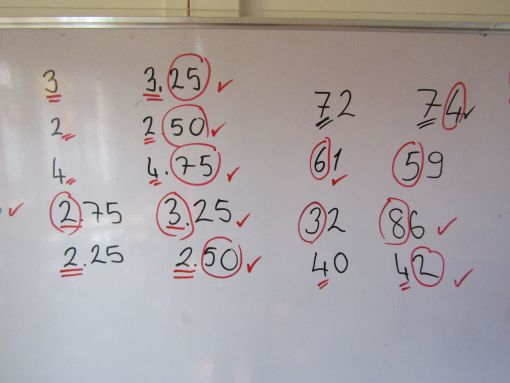 3 3.25 72 74
2 2.50 61 59
4 4.75 32 86
2.75 3.25 40 42
2.25 2.50